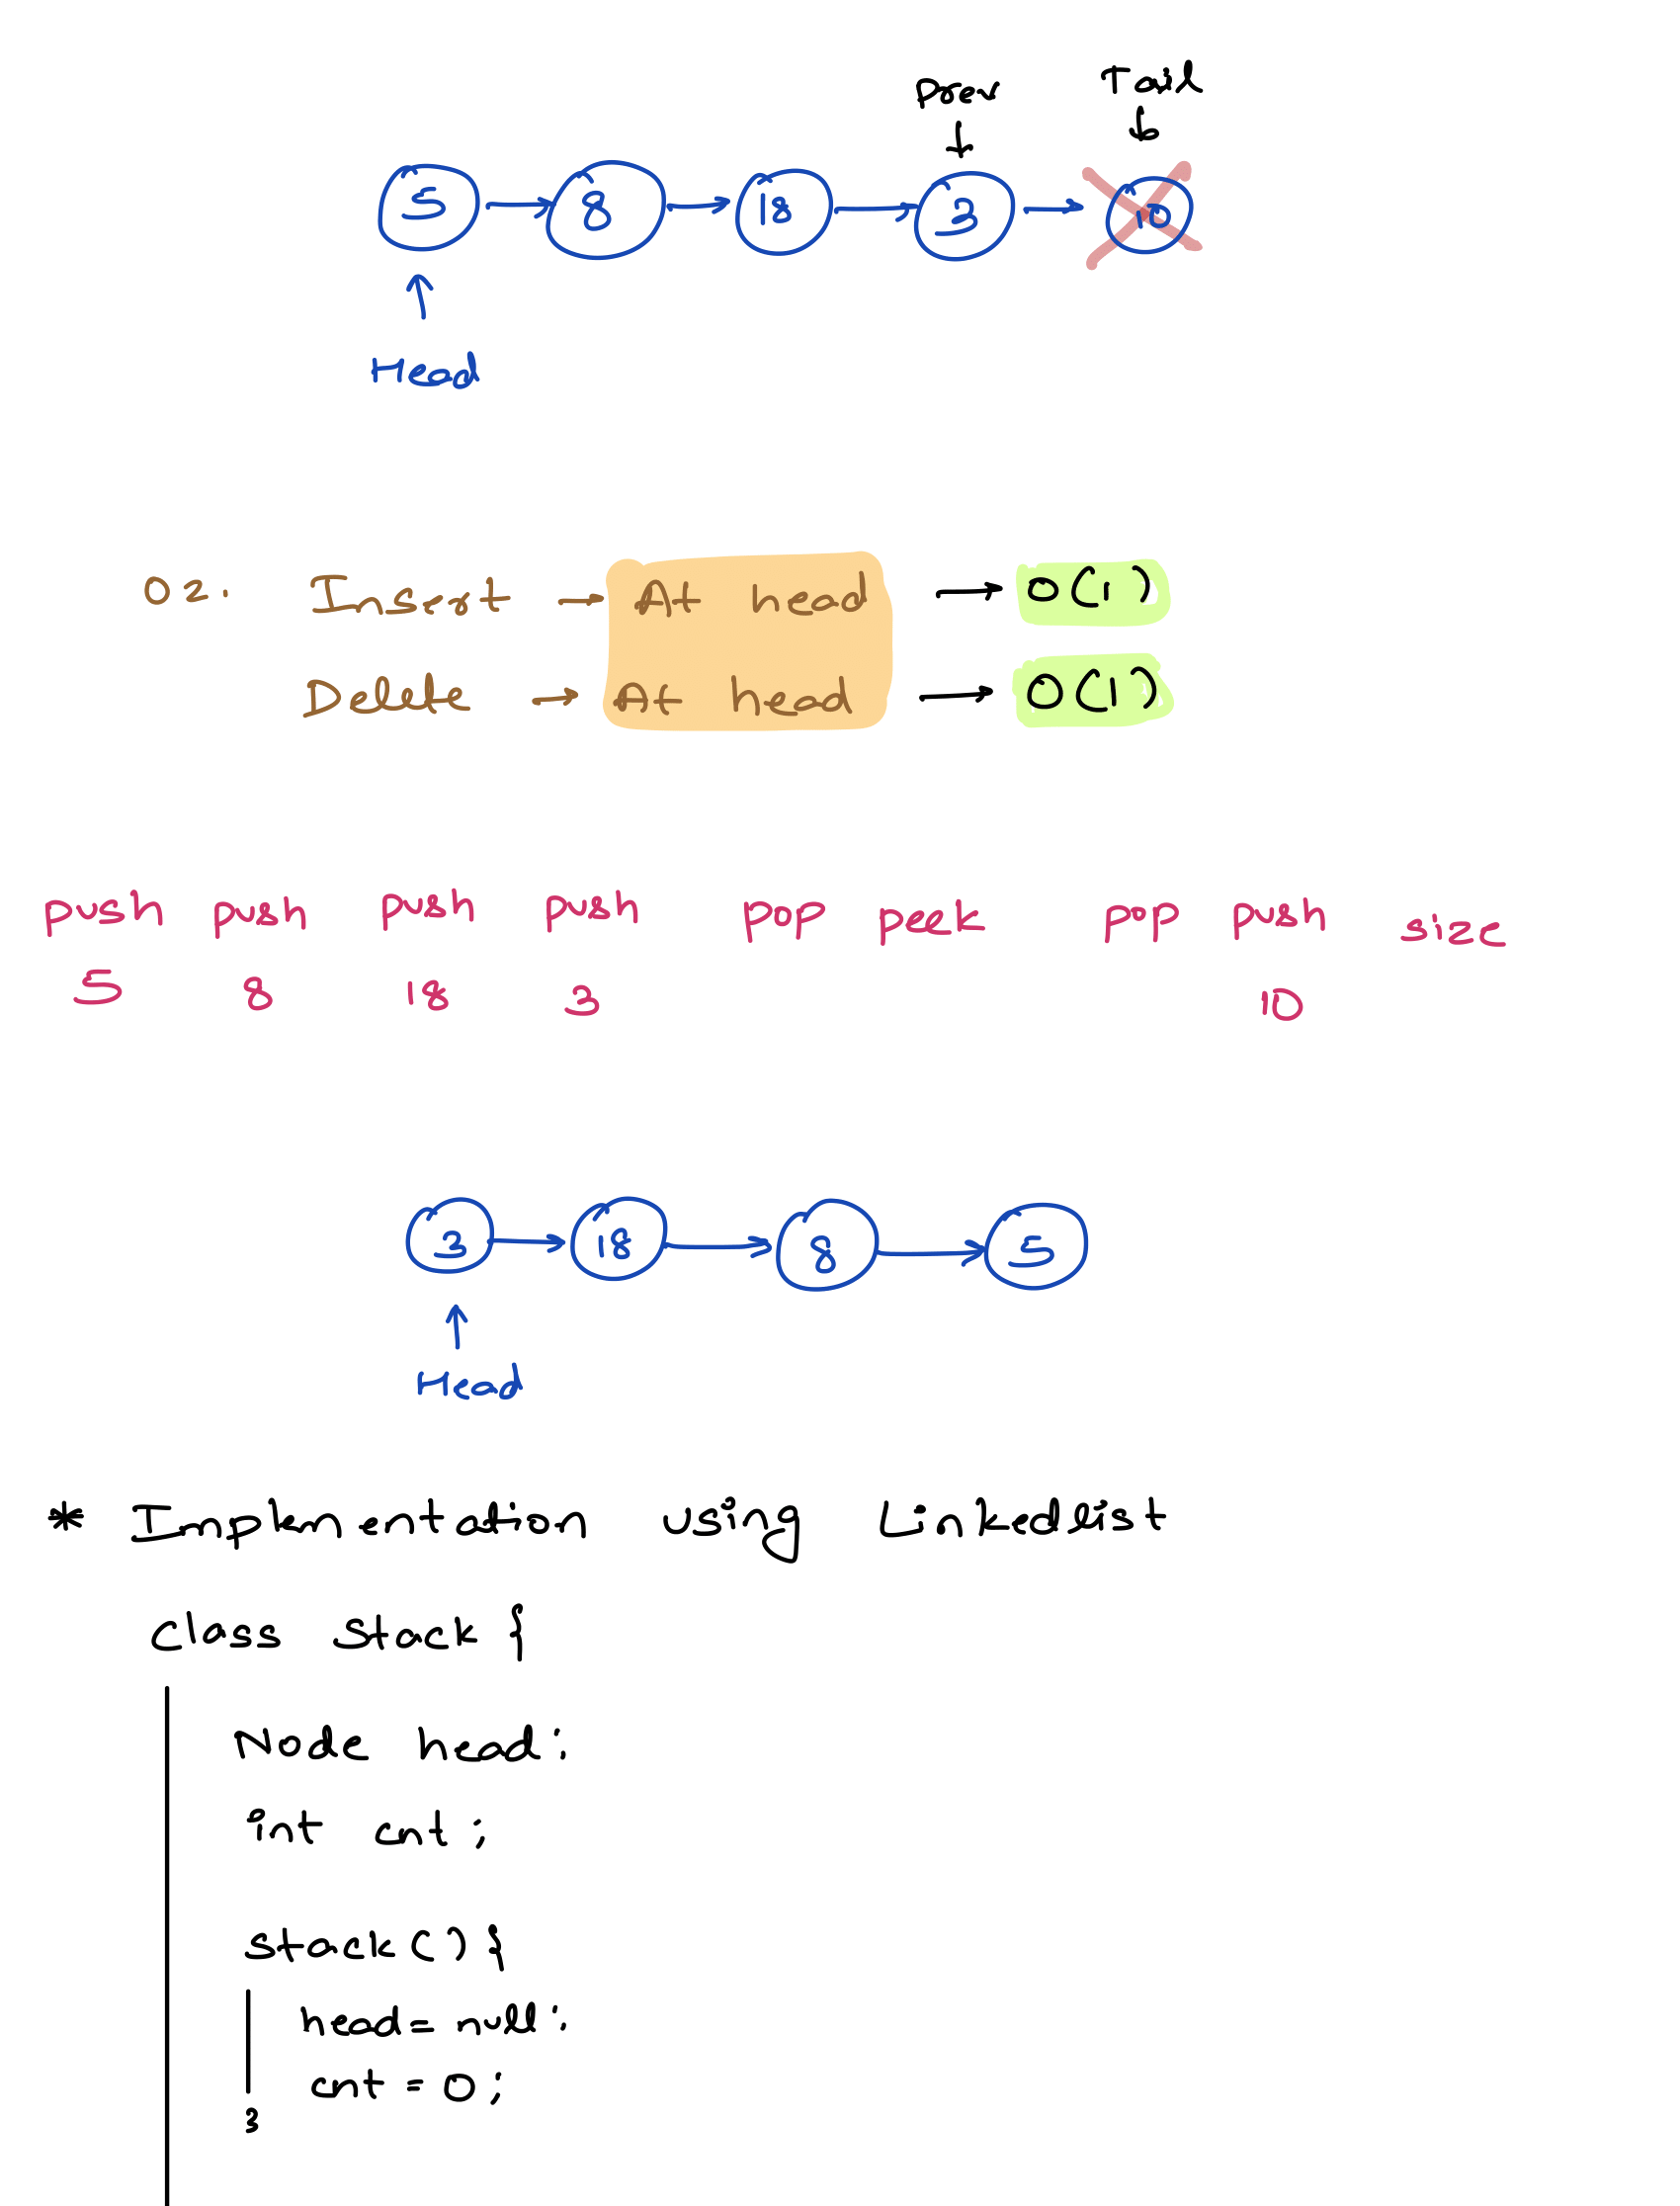 Prev Tail
5 8 18 3 10
Head
02. Insert → At head → O(1)
Delete → At head → O(1)
push push push push pop peek pop push size
5 8 18 3 10
3 → 18 → 8 → 5
Head
* Implementation using Linkedlist
Class Stack {
Node head;
int cnt;
stack() {
head = null;
cnt = 0;
}